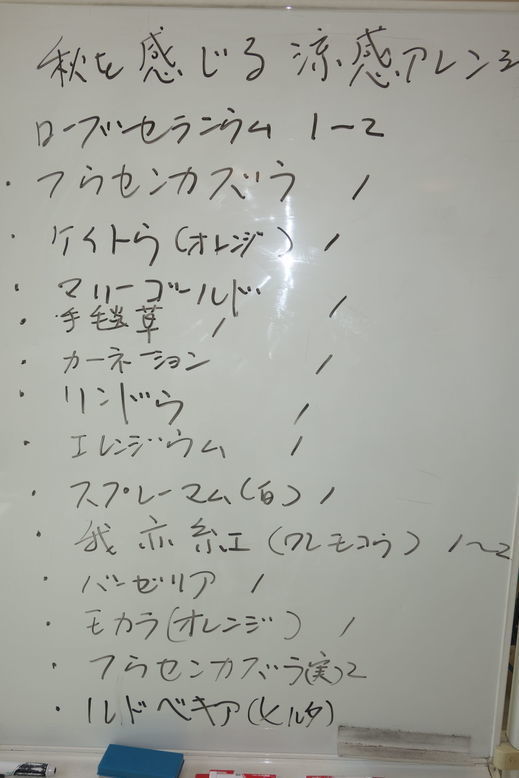 秋を感じる涼感アレンジ
ローズゼラニウム 1〜2
・フウセンカズラ 1
・ケイトウ(オレンジ) 1
・マリーゴールド 1
・手毬草 1
・カーネーション 1
・リンドウ 1
・エレンジウム 1
・スプレーマム(白) 1
・我亦紅(ワレモコウ) 1〜2
・バーゼリア 1
・モカラ(オレンジ) 1
・フウセンカズラ(実)2
・ルドベキア(ヒルタ)